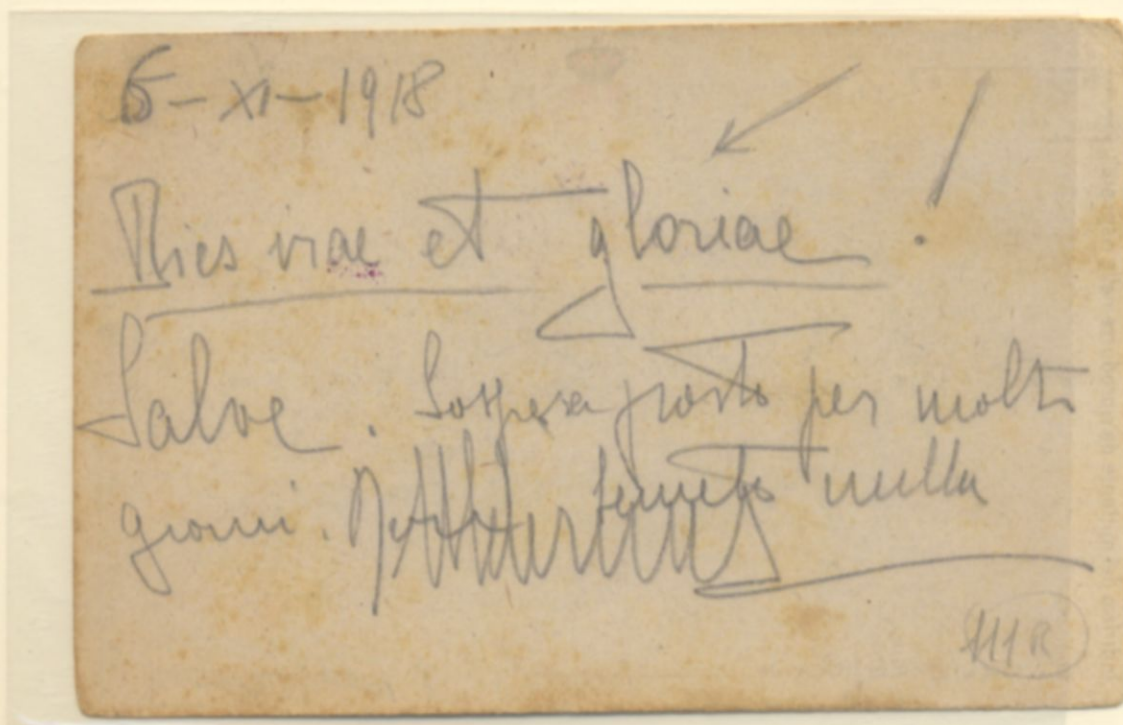 5-XI-1918
Dies irae et gloriae!
Salve. Sospesa posta per molti
giorni. temete nulla
111 R